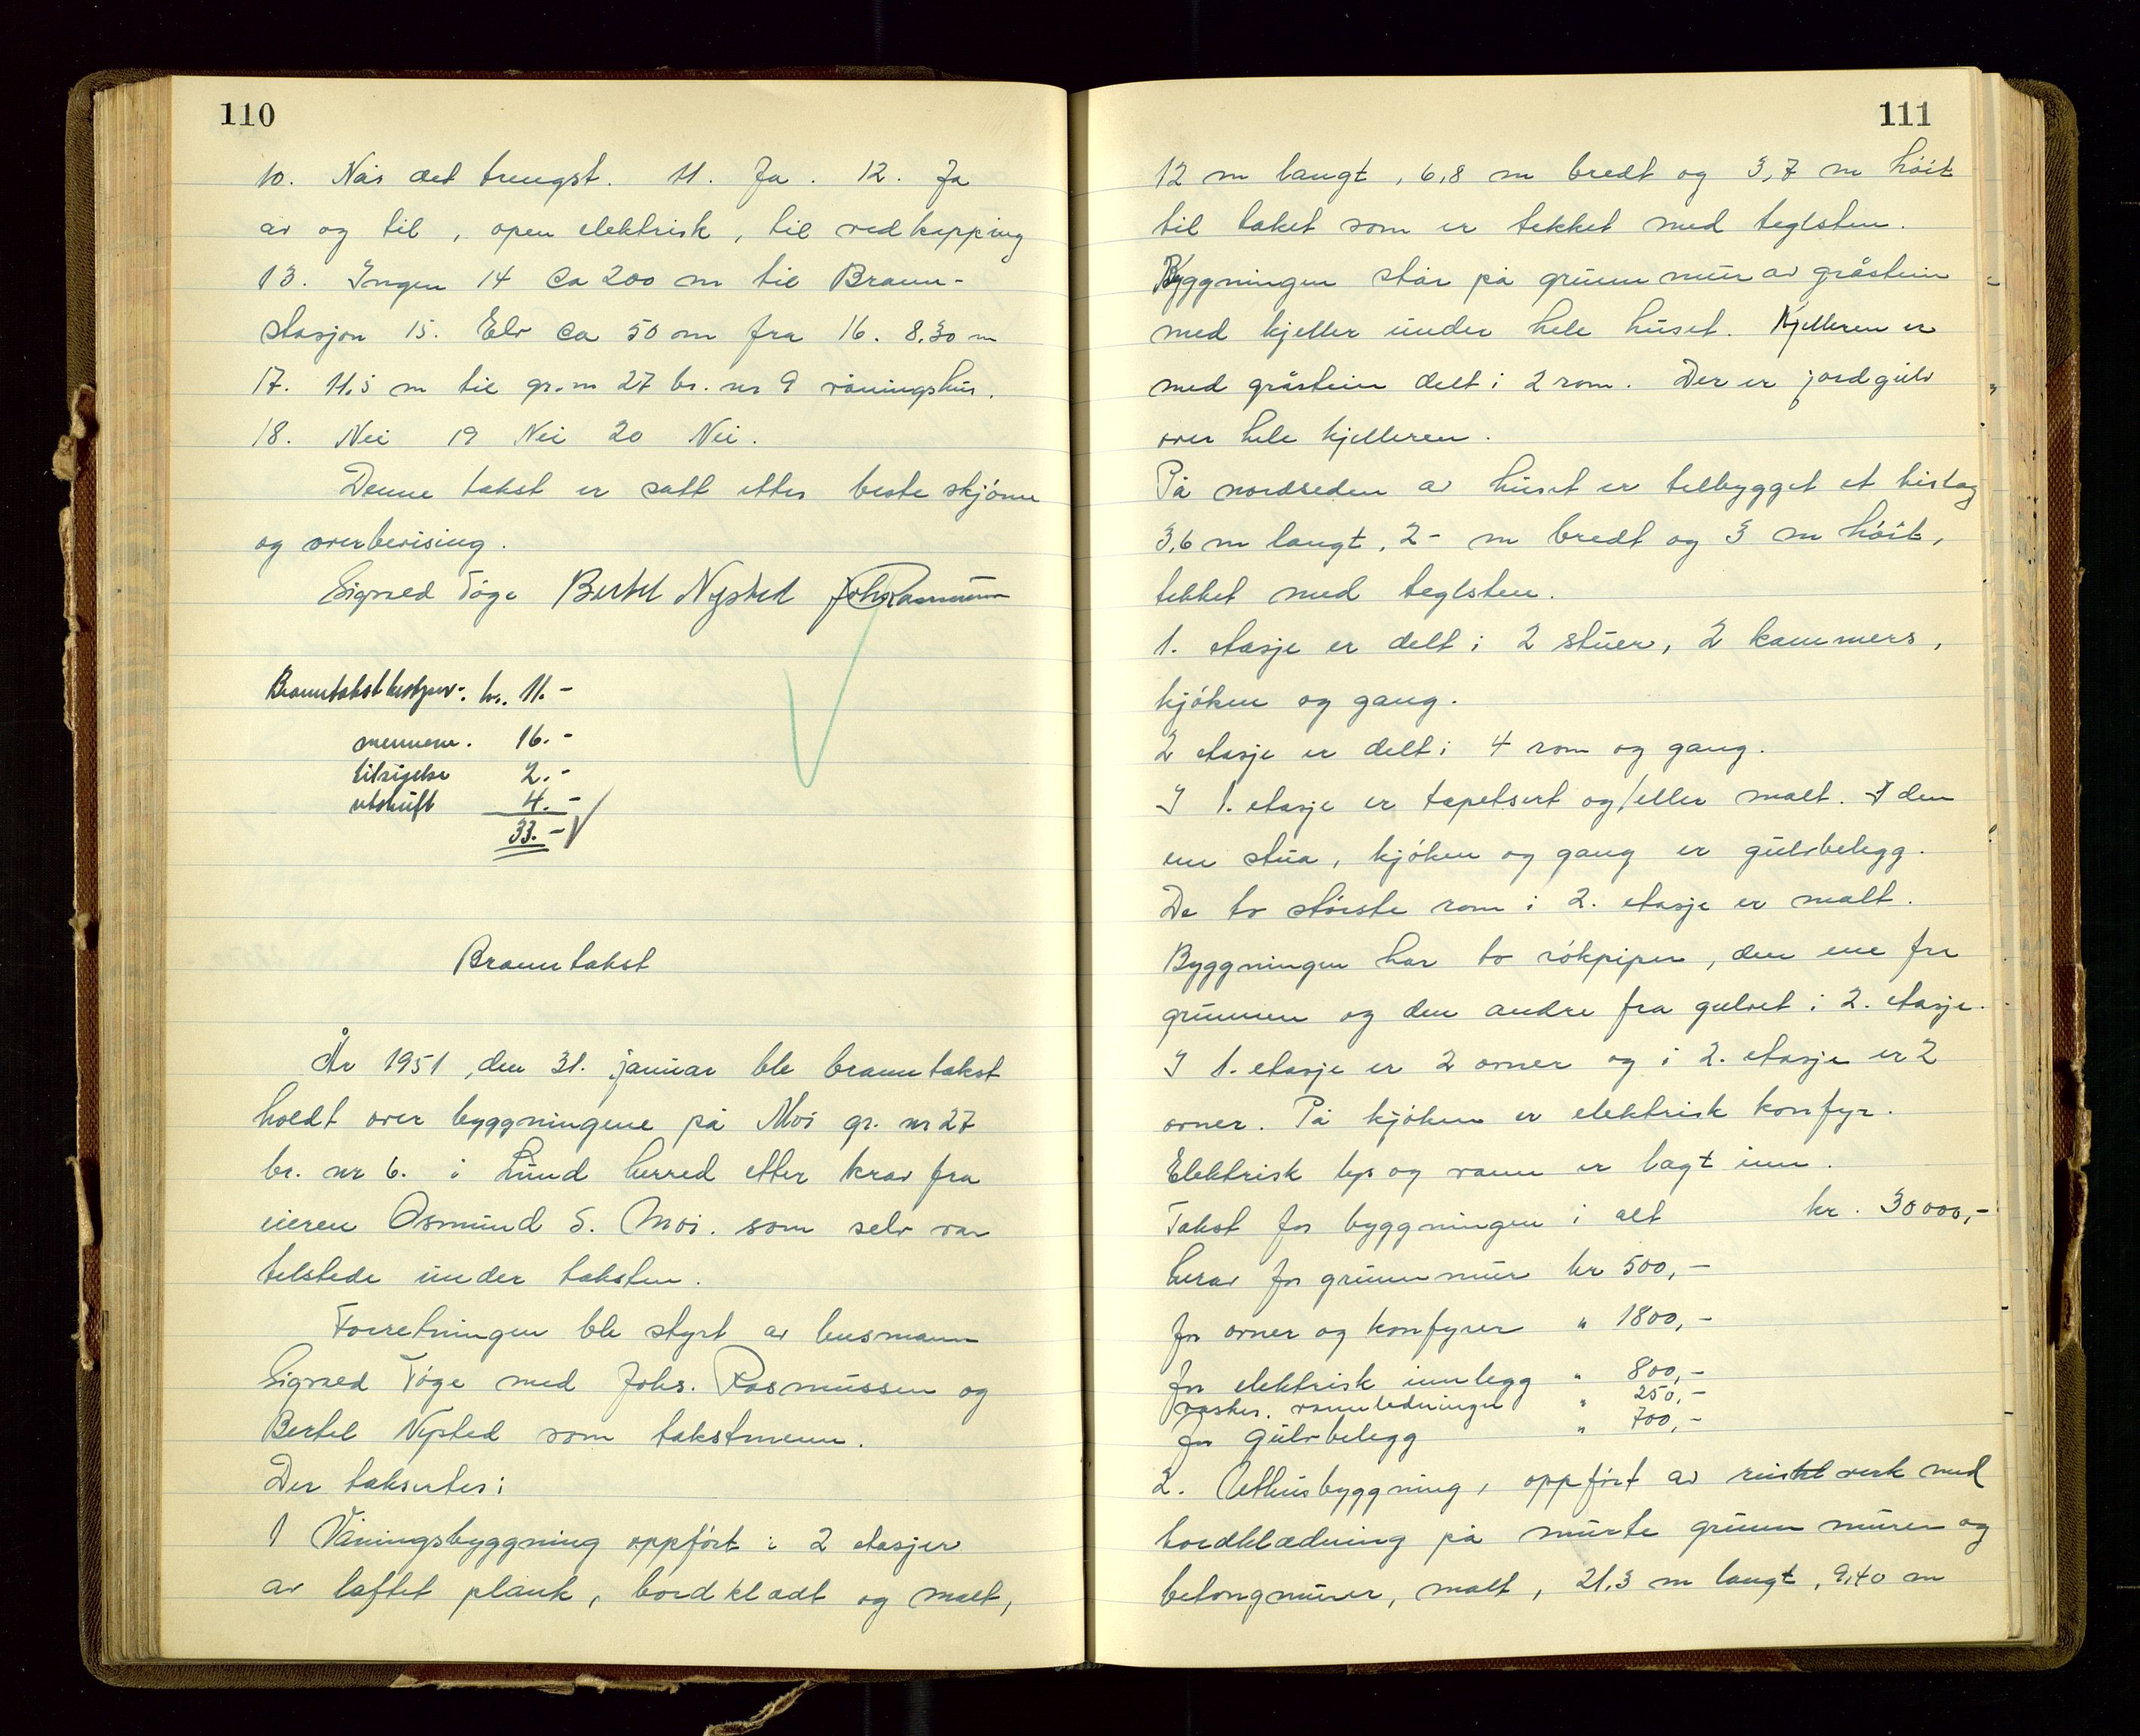 110
10. Når det trengst. 11. Ja. 12. Ja
av og til, open elektrisk, til vedkapping
13. Ingen 14 Ca 200 m til Brann-
stasjon 15. Elv ca 50 m fra 16. 8.30 m
17. 11,5 m til gr. nr 27 br. nr 9 våningshus.
18. Nei 19 Nei 20 Nei.
Denne takst er satt etter beste skjönn
og overbevising.
Sigvald Töge Bertel Nysted Joh Rasmussen
Branntakstbestyrer. kr. 11.-
mennene. 16.-
tilsigelse 2.-
utskrift 4.-
33.-
Branntakst
År 1951, den 31. januar ble branntakst
holdt over byggningene på Moi gr. nr 27
br. nr 6. i Lund herred etter krav fra
eieren Osmund S. Moi. som selv var
tilstede under taksten.
Forretningen ble styrt av lensmann
Sigvald Töge med Johs. Rasmussen og
Bertel Nysted som takstmenn.
Der taksertes:
1 Våningsbyggning oppfört i 2 etasjer
av laftet plank, bordklædt og malt,
111
12 m langt, 6,8 m bredt og 3,7 m höit
til taket som er tekket med teglsten.
Byggningen står på grunnmur av gråstein
med kjeller under hele huset. Kjelleren er
med gråstein delt i 2 rom. Der er jordgulv
over hele kjelleren.
På nordsiden av huset er tilbygget et bislag
3,6 m langt, 2- m bredt og 3 m höit,
tekket med teglsten.
1. etasje er delt i 2 stuer, 2 kammers,
kjöken og gang.
2 etasje er delt i 4 rom og gang.
I 1. etasje er tapetsert og/eller malt. I den
ene stua, kjöken og gang er gulvbelegg.
De to störste rom i 2. etasje er malt.
Byggningen har to rökpiper, den ene fra
grunnen og den andre fra gulvet i 2. etasje.
I 1. etasje er 2 ovner og i 2. etasje er 2
ovner. På kjöken er elektrisk komfyr.
Elektrisk lys og vann er lagt inn.
Takst for byggningen i alt kr. 30000,-
herav for grunnmur kr 500,-
for ovner og komfyrer " 1800,-
for elektrisk innlegg " 800,-
vasker. vannledninger " 250,-
for gulvbelegg " 700,-
2. Uthusbyggning, oppfört av reisverk med
bordklædning på murte grunnmurer og
betongmurer, malt, 21,3 m langt, 9,40 m